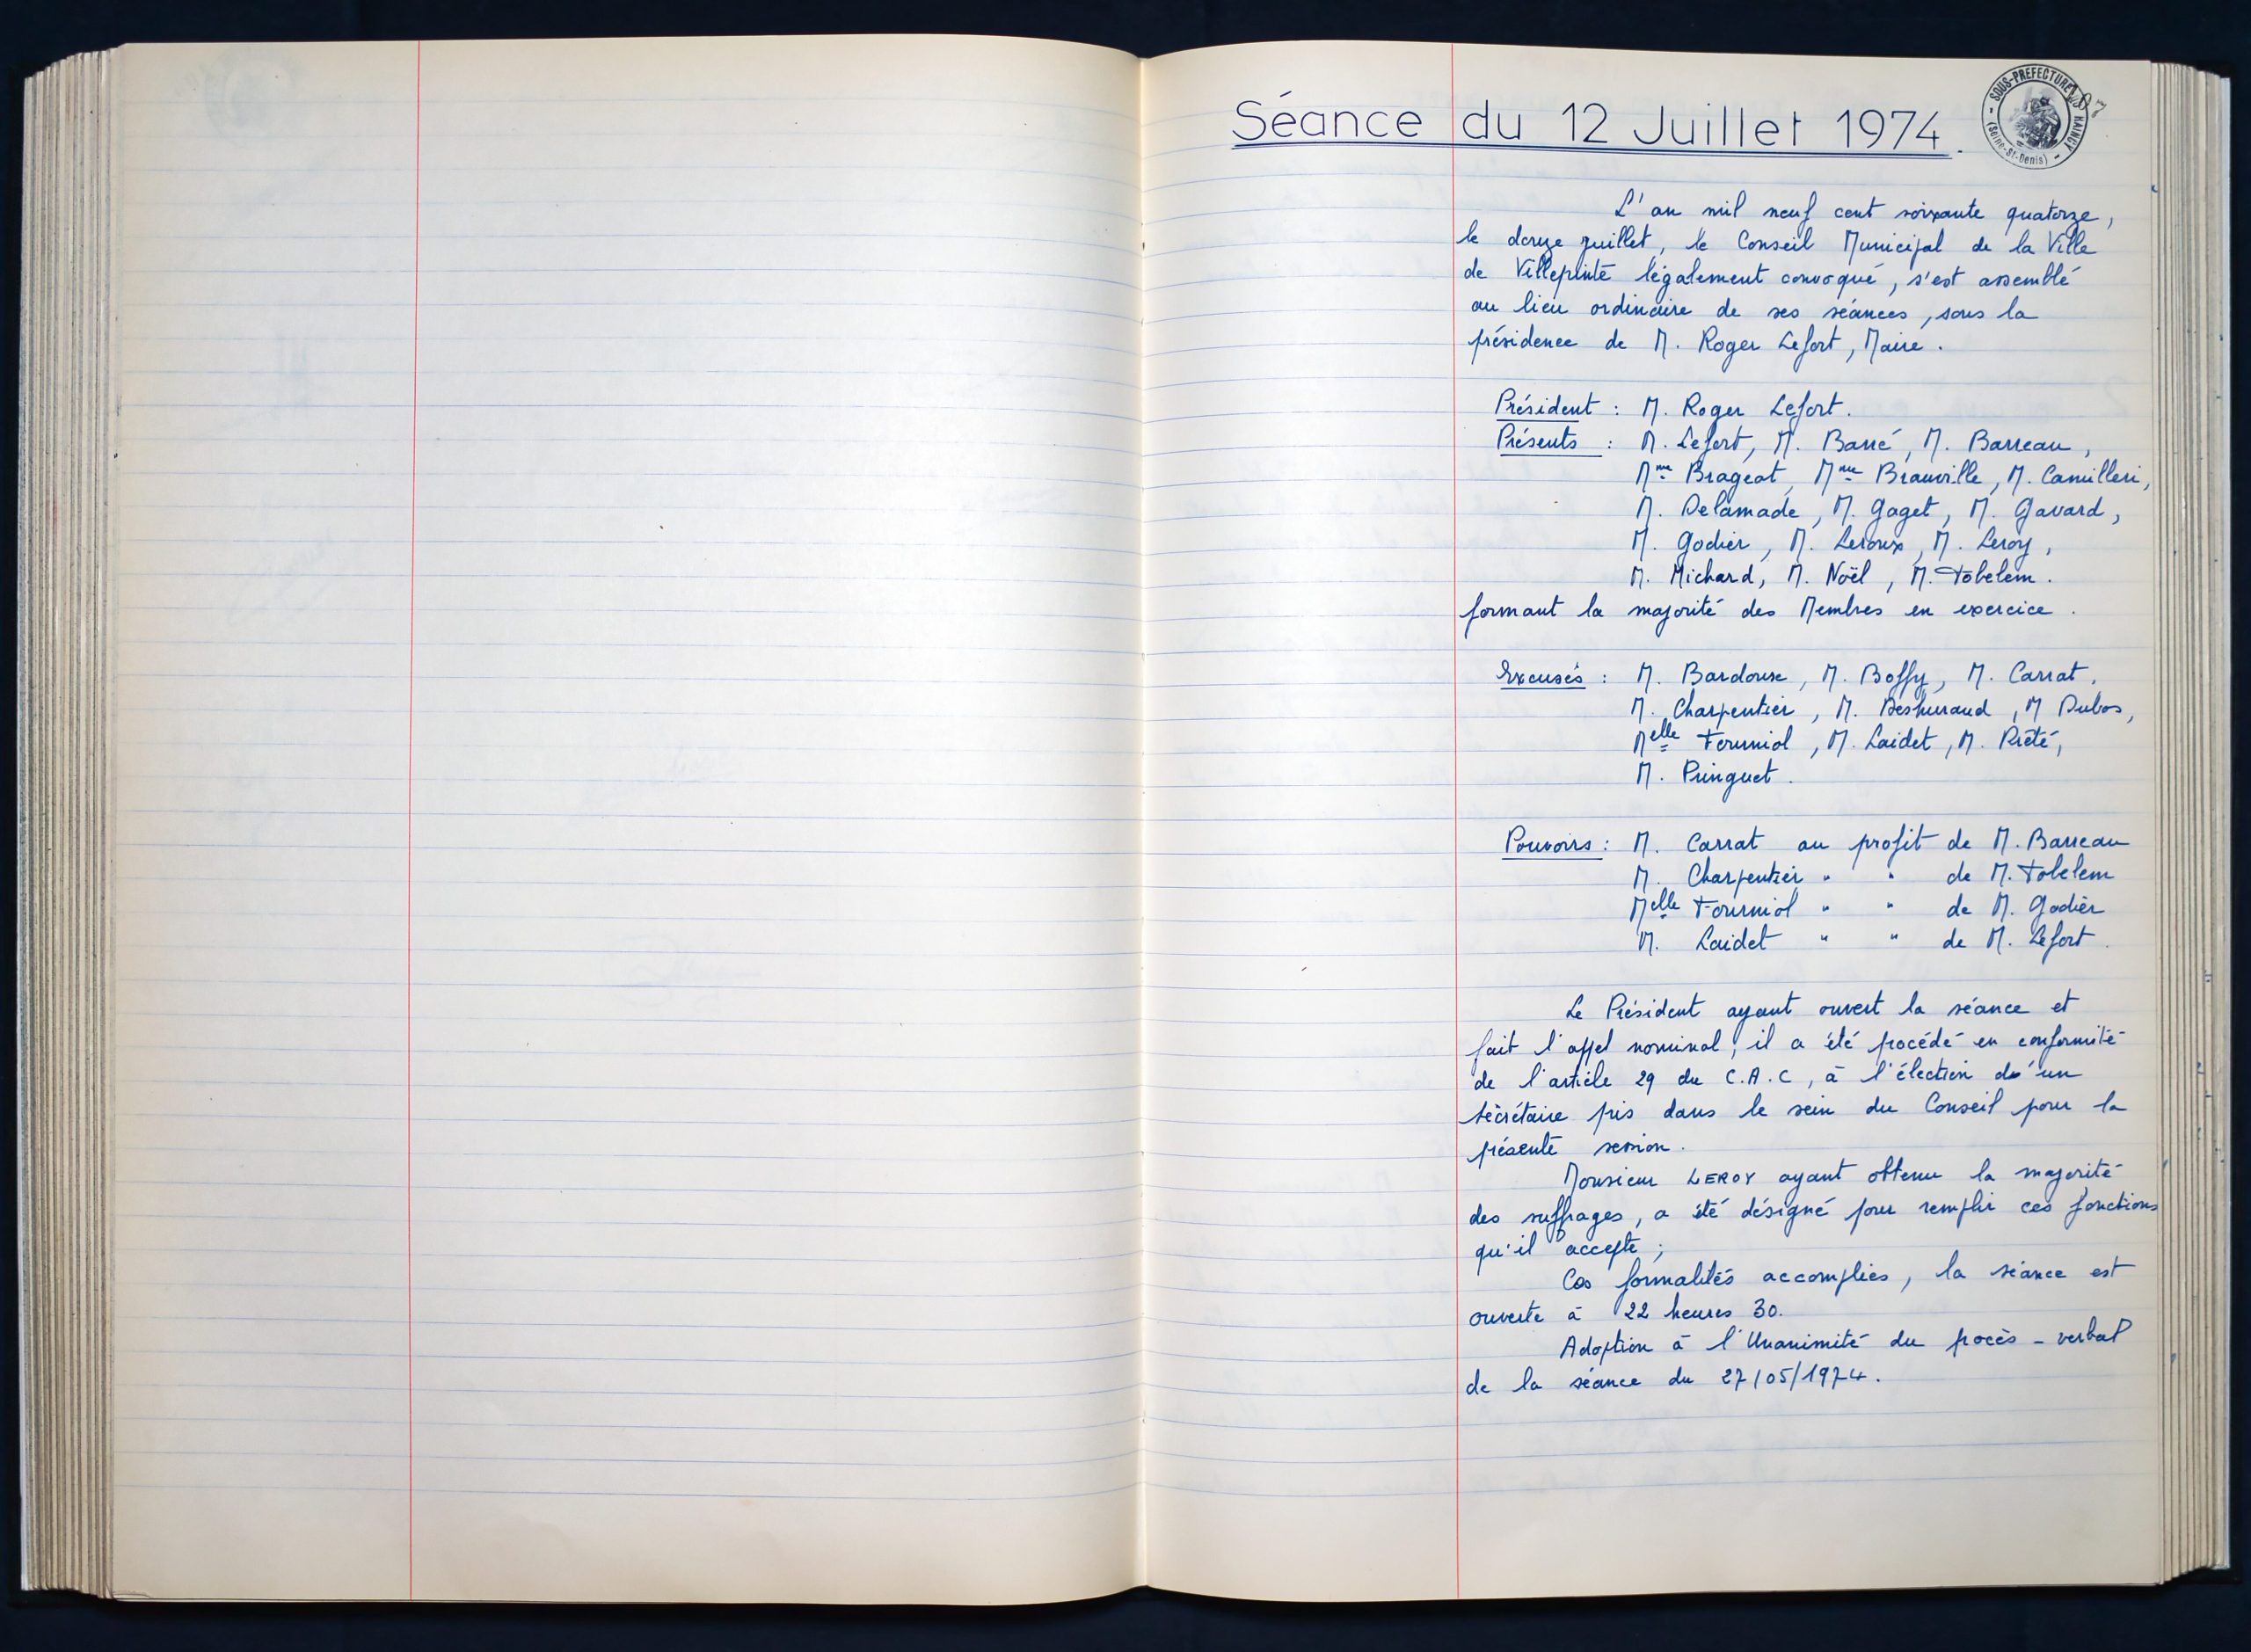 Séance du 12 Juillet 1974.
SOUS-PREFECTURE
RAINCY
(Seine-St-Denis)
L'an mil neuf cent soixante quatorze,
le douze juillet, le Conseil Municipal de la Ville
de Villepinte légalement convoqué, s'est assemblé
au lieu ordinaire de ses séances, sous la
présidence de M. Roger Lefort, Maire.
Président : M. Roger Lefort.
Présents : M. Lefort, M. Barré, M. Barreau,
Mme Brageot, Mme Brauville, M. Camilleri,
M. Delamade, M. Gaget, M. Gavard,
M. Godier, M. Leroux, M. Leroy,
M. Michard, M. Noël, M. Tobelem.
formant la majorité des Membres en exercice.
Excusés : M. Bardoux, M. Boffy, M. Carrat,
M. Charpentier, M. , M Dubos,
Melle Fourniol, M. Laidet, M. Piété,
M. Pringuet.
Pouvoirs : M. Carrat au profit de M. Barreau
M. Charpentier " " de M. Tobelem
Melle Fourniol " " de M. Godier
M. Laidet " " de M. Lefort.
Le Président ayant ouvert la séance et
fait l'appel nominal, il a été procédé en conformité
de l'article 29 du C.A.C, à l'élection d'un
secrétaire pris dans le sein du Conseil pour la
présente session.
Monsieur LEROY ayant obtenu la majorité
des suffrages, a été désigné pour remplir ces fonctions
qu'il accepte ;
Ces formalités accomplies, la séance est
ouverte à 22 heures 30.
Adoption à l'Unanimité du procès-verbal
de la séance du 27/05/1974.